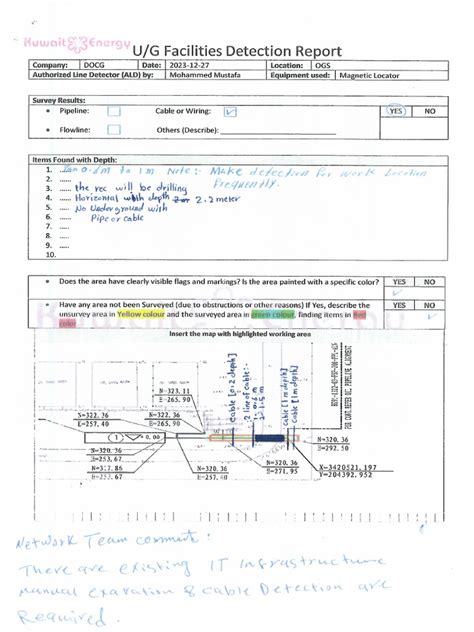 Kuwait Energy
U/G Facilities Detection Report
Company: DOCG Date: 2023-12-27 Location: OGS
Authorized Line Detector (ALD) by: Mohammed Mustafa Equipment used: Magnetic Locator
Survey Results:
• Pipeline: Cable or Wiring: YES NO
• Flowline: Others (Describe):
Items Found with Depth:
1. 0.6m to 1m Note:- Make detection For work Location
2. ...... Frequently.
3. ...... the rec will be drilling
4. Horizontal with depth 2.2 meter
5. No Underground with
6. ...... Pipe or cable
7. .....
8. .....
9. .....
10.
• Does the area have clearly visible flags and markings? Is the area painted with a specific color? YES NO
• Have any area not been Surveyed (due to obstructions or other reasons) If Yes, describe the YES NO
unsurvey area in Yellow colour and the surveyed area in green colour, finding items in Red
color
Kuwait Energy
Insert the map with highlighted working area
cable [0.2 depth]
2 line of cable:-
cable [1m depth]
cable [1m depth]
N=323.11
E=265.90
N=322.36
E=257.40
N=322.36
E=265.90
1 0.00
N=320.36
E=253.67
N=317.86
E=253.67
N=320.36
E=257.40
N=320.36
E=271.95
N=320.36
E=292.50
X=3420521.197
Y=204392.952
Network Team comment:
There are existing IT Infrastructure
manual exavation & cable Detection are
Required.